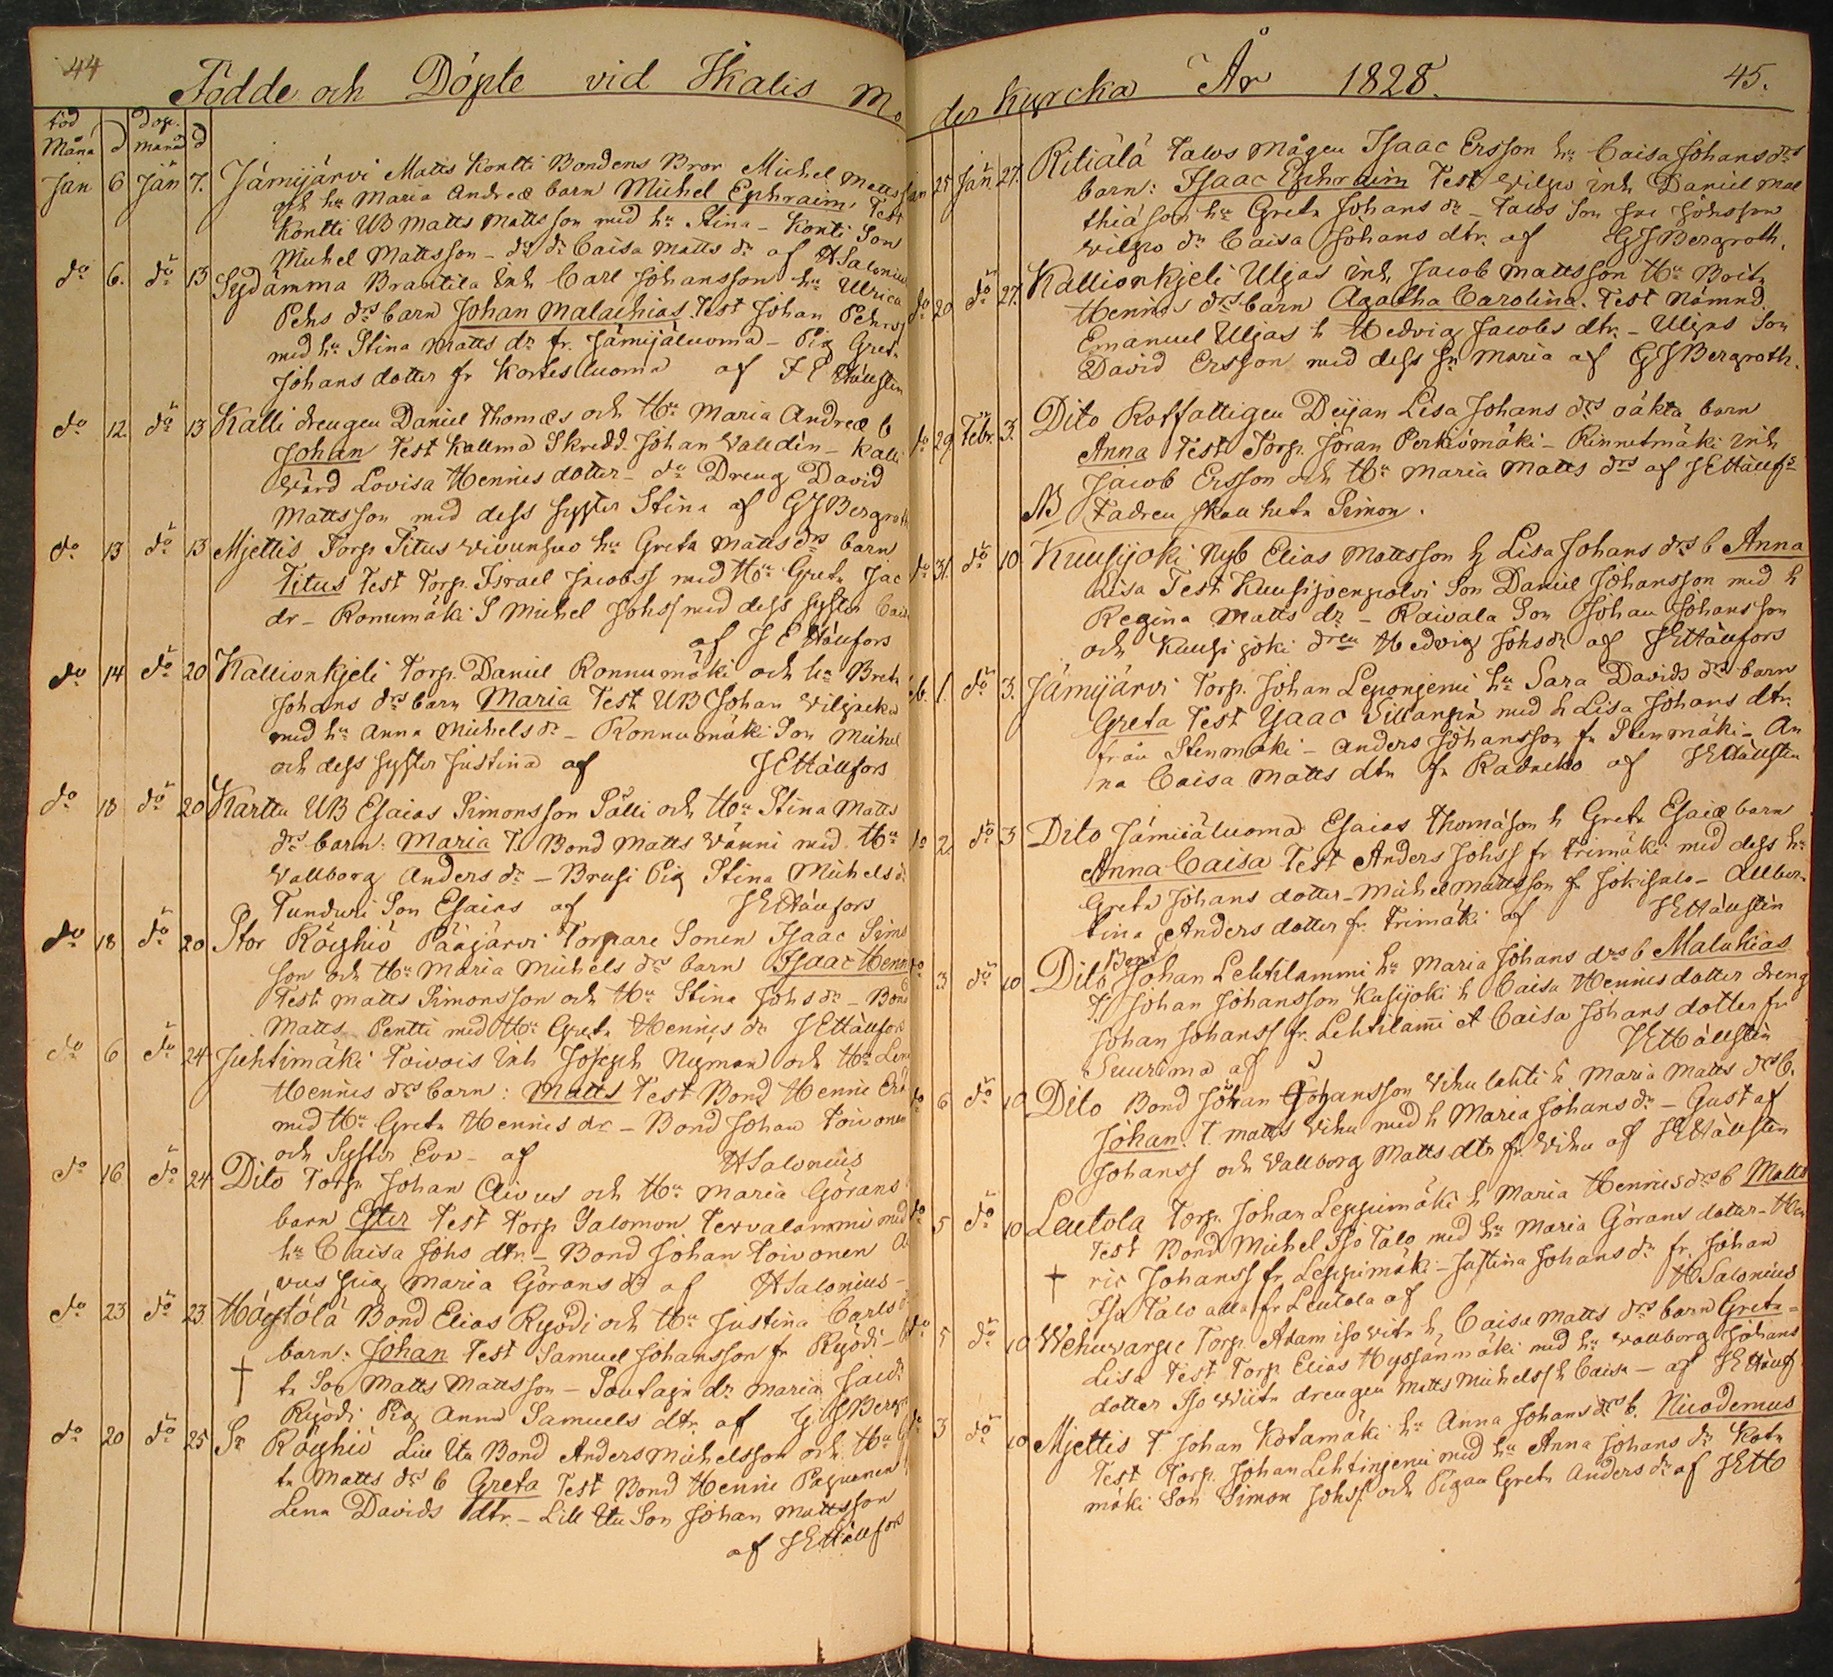 44
Födde och Döpte vid Ikalis Mo
föd dop.
Måna d månad d
Jan 6 Jan 7. Jämijärvi Matts Kontti Bondens Bror Michel Matts
och hu Maria Andreæ barn Michel Ephraim, Test
Kontti UB Matts Mattsson med hu Stina - Konti Son
Michel Mattsson - do dr Caisa Matts dr af HSalonius
do 6. do 13 Sydänma Brautila inh Carl Johansson hu Ulrica
Pehs drs barn Johan Malachias. Test Johan Pehrss
med hu Stina Matts dr fr. Jämijäluoma - Pig Greta
Johans dotter fr Kortesluoma af
do 12. do 13 Kalli drengen Daniel Thomæs och Hu Maria Andreæ b
Johan Test Kallma Skredd. Johan Valldin - Kalli
Värd Lovisa Hennes dotter - do Dreng David
Mattsson med dess syster Stina af GJBergroth
do 13 do 13 Mjettis Torp. Titus hu Greta Matts drs barn
Titus Test Torp. Israel Jacobss med Hu Greta Jac
dr - Romumäki S Michel Johss med dess syster Cai
af JEHällfors
do 14 do 20 Kallionkjeli Torp. Daniel Ronnumäki och hu Breta
Johans drs barn Maria Test UB Johan
med hu Anna Michels dr - Ronnumäki Son Michel
och dess syster Justina af JEHällfors
do 18 do 20 Kartu UB Esaias Simonsson Sälli och Hu Stina Matts
drs barn: Maria T. Bond Matts Vänni med Hu
Vallborg Anders dr - Brusi Pig Stina Michels dr
Son Esaias af JEHällfors
do 18 do 20 Stor Röyhiö Pääjärvi Torpare Sonen Isaac Sims
son och Hu Maria Michels drs barn Isaac Henn
Test: Matts Simonsson och Hu Stina Johs dr - Bond
Matts Pentti med Hu Greta Hennes dr JEHällfors
do 6 do 24 Juhtimäki Toivois inh Joseph Nyman och Hu Lena
Hennes drs barn: Matts Test Bond Henric
med Hu Greta Hennes dr - Bond Johan Toivonen
och Syster Eva - af HSalonius
do 16 do 24 Dito Torp. Johan Aivus och Hu Maria Görans
barn Ester Test Torp Salomon Tervalammi med
hu Caisa Johs dtr - Bond Johan Toivonen A
vus pig Maria Görans dr af HSalonius
do 23 do 23 Höystölä Bond Elias Ryödi och Hu Justina Carls d
barn: Johan Test Samuel Johansson fr Ryödi -
† Son Matts Mattsson - dr Maria
Ryödi Pig Anna Samuels dtr. af GJBerg
do 20 do 25 Sr Röyhiö Lill Uu Bond Anders Michelsson och Hu G
ta Matts drs b Greta Test Bond Henric
Lena Davids dtr. - Lill Uu Son Johan Mattsson
af JEHällfors
der Kyrcka År 1828. 45.
Jan 25 Jan 27. Ritiälä Talos Mågen Isaac Ersson hu Caisa Johans drs
barn: Isaac Ephraim Test Vilpo inh Daniel Mat
thiäson hu Greta Johans dr - Talos Son Isac Johsson
Vilpo dr Caisa Johans dtr. af GJBergroth.
do 20 do 27. Kallionkjeli Uljas inh Jacob Mattsson Hu Brita
Hennes drs barn Agatha Carolina. Test Nämnd.
Emanuel Uljas h Hedvig Jacobs dtr. - Uljas Son
David Ersson med dess hu Maria af GJBergroth.
do 29 Febr. 3. Dito Rotfattigen Deijan Lisa Johans drs oäkta barn
Anna Test Torp. Jöran Perkiömäki - Rinnetmäki inh
Jacob Ersson och Hu Maria Matts drs af JEHällfs
NB Fadren skall heta Simon.
do 31. do 10. Kuusijoki Nyb Elias Mattsson h Lisa Johans drs b Anna
Lisa Test Kuusijoenpolvi Son Daniel Johansson med h
Regina Matts dr - Raivala Son Johan Johansson
och Kuusijoki Hedvig Johs dr af JEHällfors
1. do 3. Jämijärvi Torp. Johan Leponjemi hu Sara Davids drs barn
Greta Test Isaac Sillanpä med h Lisa Johans dtr.
från Stenmäki - Anders Johansson fr Stenmäki - An
na Caisa Matts dtr fr af
do 2. do 3 Dito Jämiäluoma Esaias Thomäson h Greta Esaiæ barn
Anna Caisa Test Anders Johss fr Trimäki med dess hu
Greta Johans dotter - Michel Mattsson fr Jokisalo - Alber
tina Anders dotter fr Trimäki af
do 3 do 10 Dito Bond Johan Lehtilammi hu Maria Johans drs b Malakias
T. Johan Johansson Kusijoki h Caisa Hennes dotter dreng
Johan Johanss fr. Lehtilam̄i et Caisa Johans dotter fr
af
do 6 do 10 Dito Bond Johan Johansson Vihu lahti h Maria Matts drs b.
Johan. T. Matts Vihu med h Maria Johans dr - Gustaf
Johanss och Vallborg Matts dtr fr. Vihu af
do 5 do 10 Leutola Torp. Johan Leppimäki h Maria Hennes drs b Matts
Test Bond Michel Iso Talo med hu Maria Görans dotter - Hen
† ric Johanss fr. Leppimäki - Justina Johans dr fr. Johan
Iso Talo alla fr Leutola af HSalonius
do 5 do 10 Wehuvarpe Torp. Adam isovita h, Caisa Matts drs barn Greta =
Lisa Test Torp. Elias med hu Vallborg Johans
dotter Iso Viita drengen Matts Michelss h Caisa - af JEHällf
do 3 do 10 Mjettis T Johan Kotamäki hu Anna Johans drs b. Nicodemus
Test Torp. Johan Lehtinjemi med hu Anna Johans dr Kota
mäki Son Simon Johss och Pigan Greta Anders dr af JEH